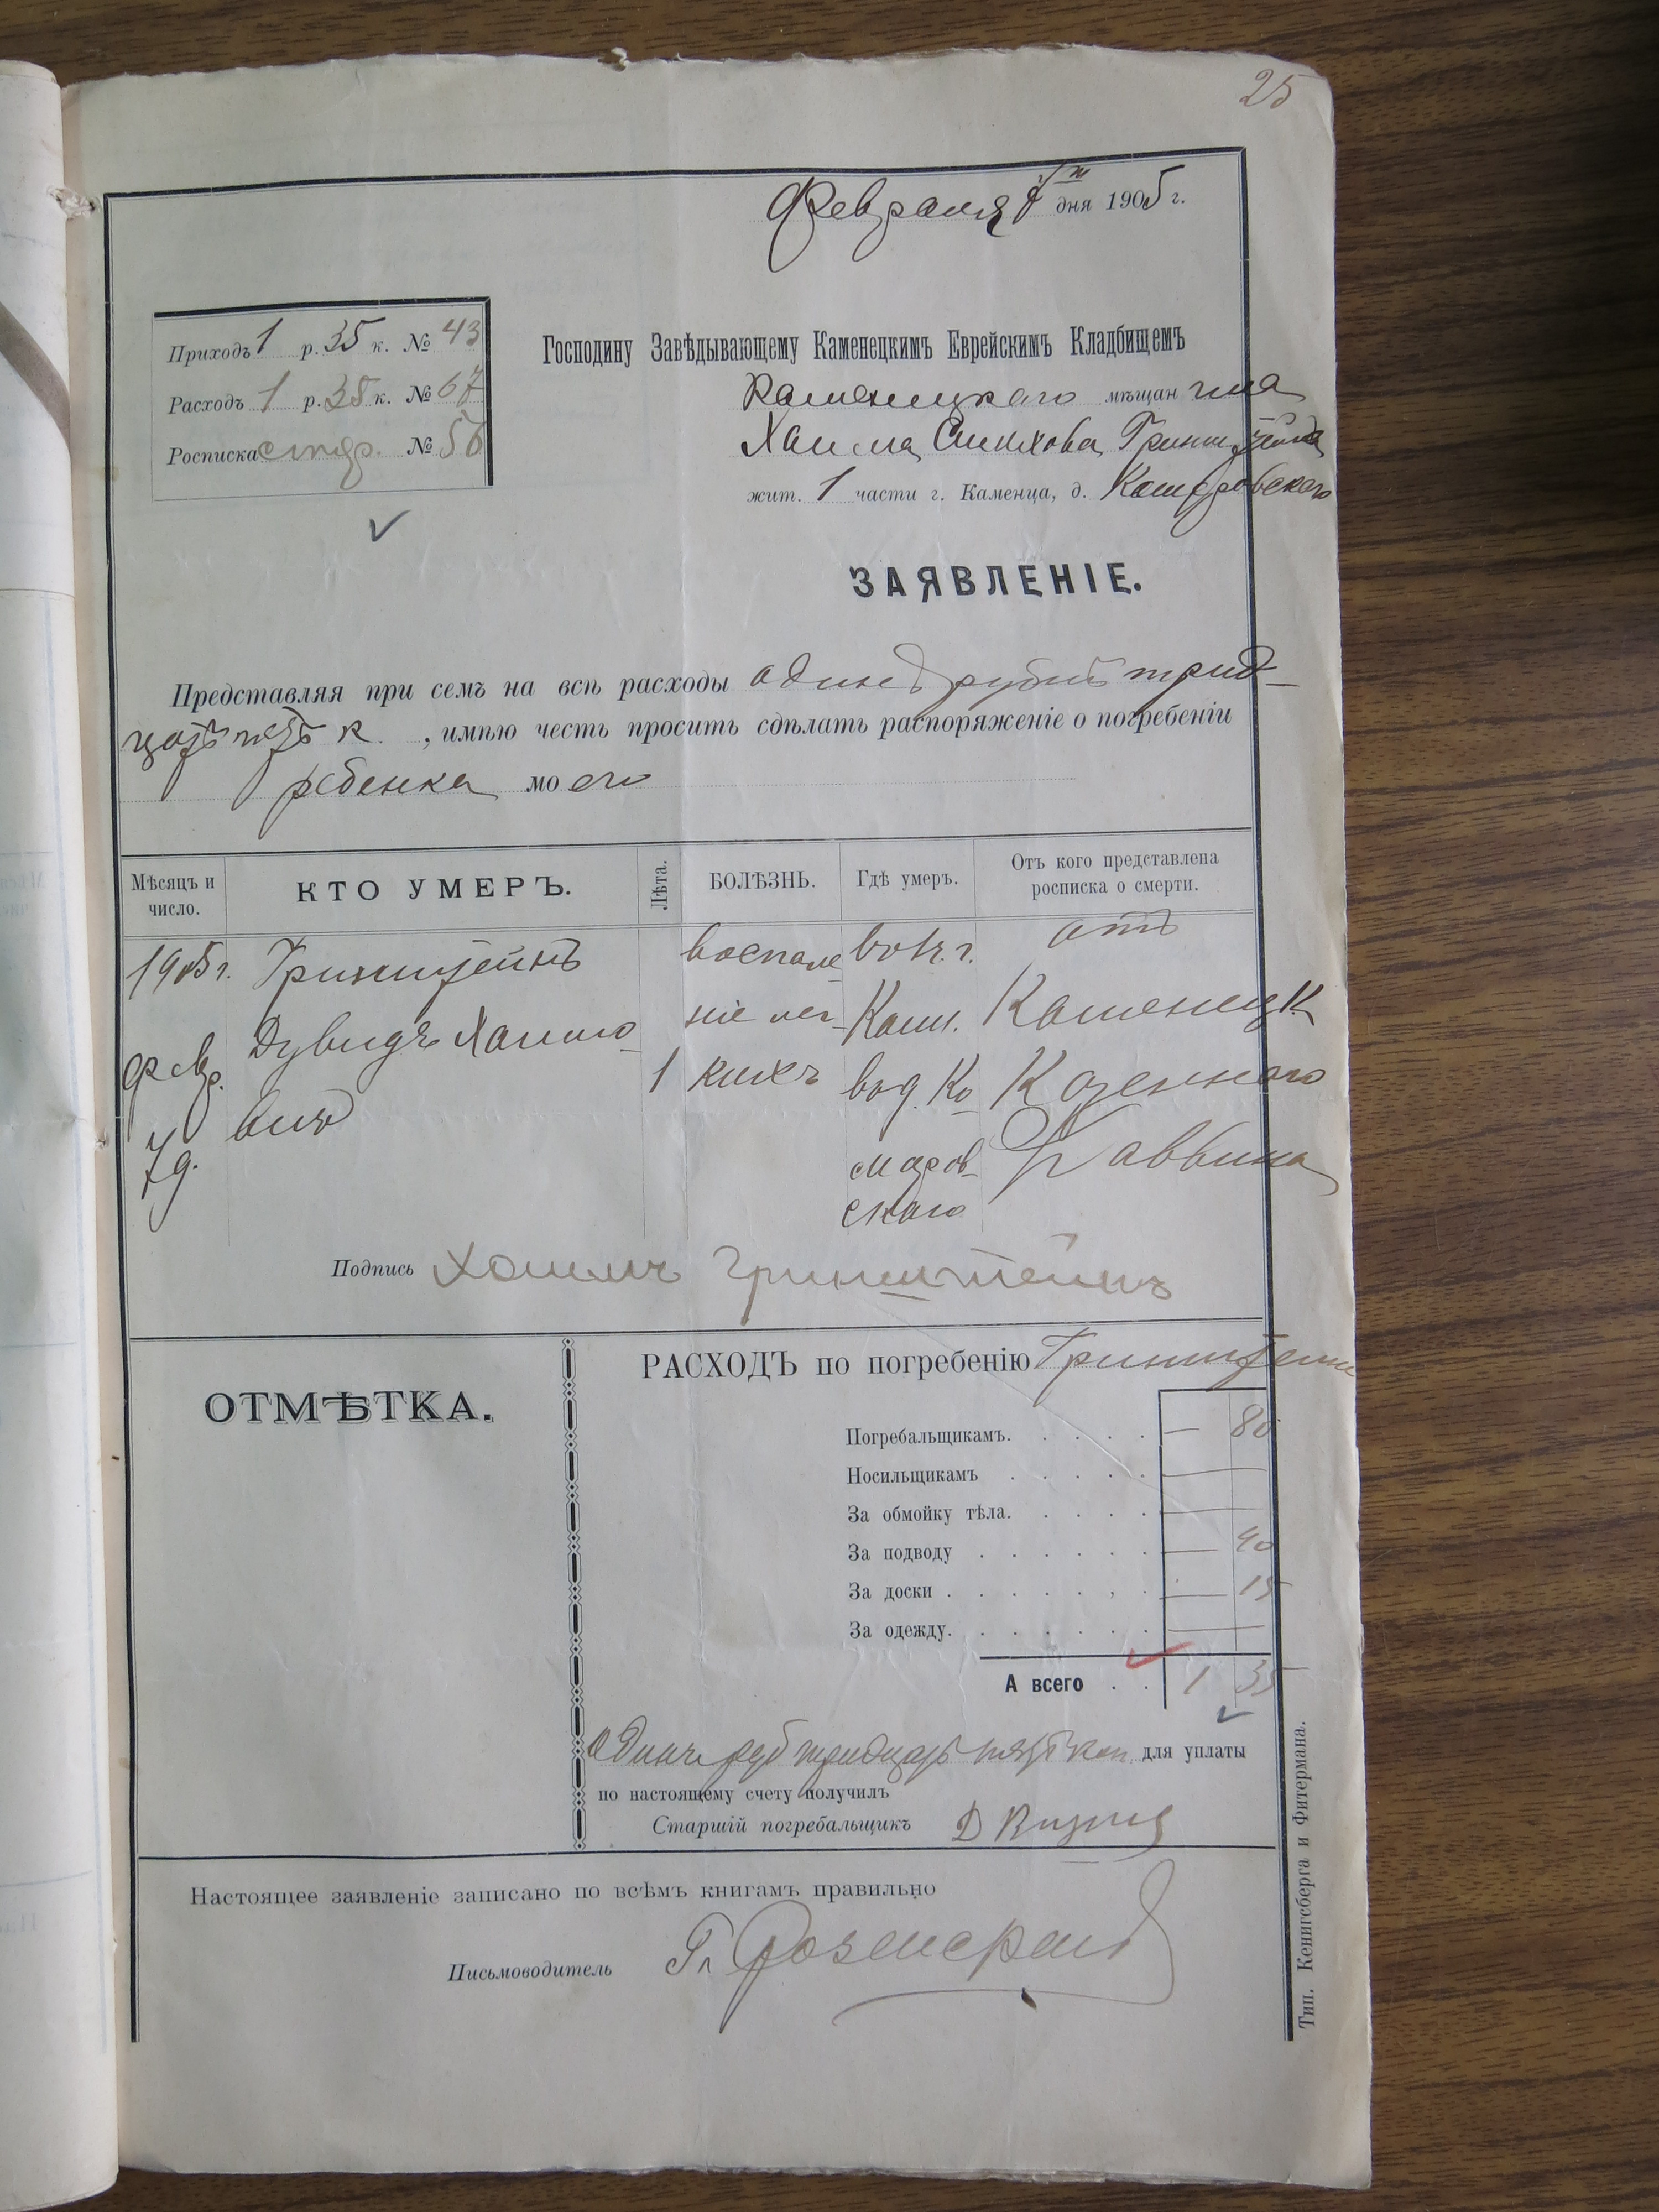 25
Февраля 7го дня 1905 г.
Приходъ 1 р. 35 к. № 43
Расходъ 1 р. 35 к. № 67
Росписка стдр. № 56
Господину Завѣдывающему Каменецкимъ Еврейскимъ Кладбищемъ
Каменецкаго мѣщанина
Хаима Гринштейна
жит. 1 части г. Каменца, д. Комаровского
ЗАЯВЛЕНІЕ.
Представляя при семъ на всѣ расходы одинъ рубль трид-
цать пять к. , имѣю честь просить сдѣлать распоряженіе о погребеніи
ребенка моего
Мѣсяцъ и число.
КТО УМЕРЪ.
Лѣта.
БОЛѢЗНЬ.
Гдѣ умеръ.
Отъ кого представлена росписка о смерти.
1905 г. Февр. 7 д.
Гринштейнъ Дувидъ Хаимо-вичъ
1
воспале ніе лег-кихъ
въ г. Кам. в д. Ко-маров-скаго
отъ Каменецк Казеннаго Раввина
Подпись Хаимъ Гринштейнъ
ОТМѢТКА.
РАСХОДЪ по погребенію Гринштейн
Погребальщикамъ. . . . . — 80
Носильщикамъ . . . . . —
За обмойку тѣла. . . . . —
За подводу . . . . . . — 40
За доски . . . . . , . — 15
За одежду. . . . . . . —
А всего . . 1 35
Одинъ руб тридцать пять коп для уплаты
по настоящему счету получилъ
Старшій погребальщикъ Д
Настоящее заявленіе записано по всѣмъ книгамъ правильно
Письмоводитель
Тип. Кенигсберга и Фитермана.